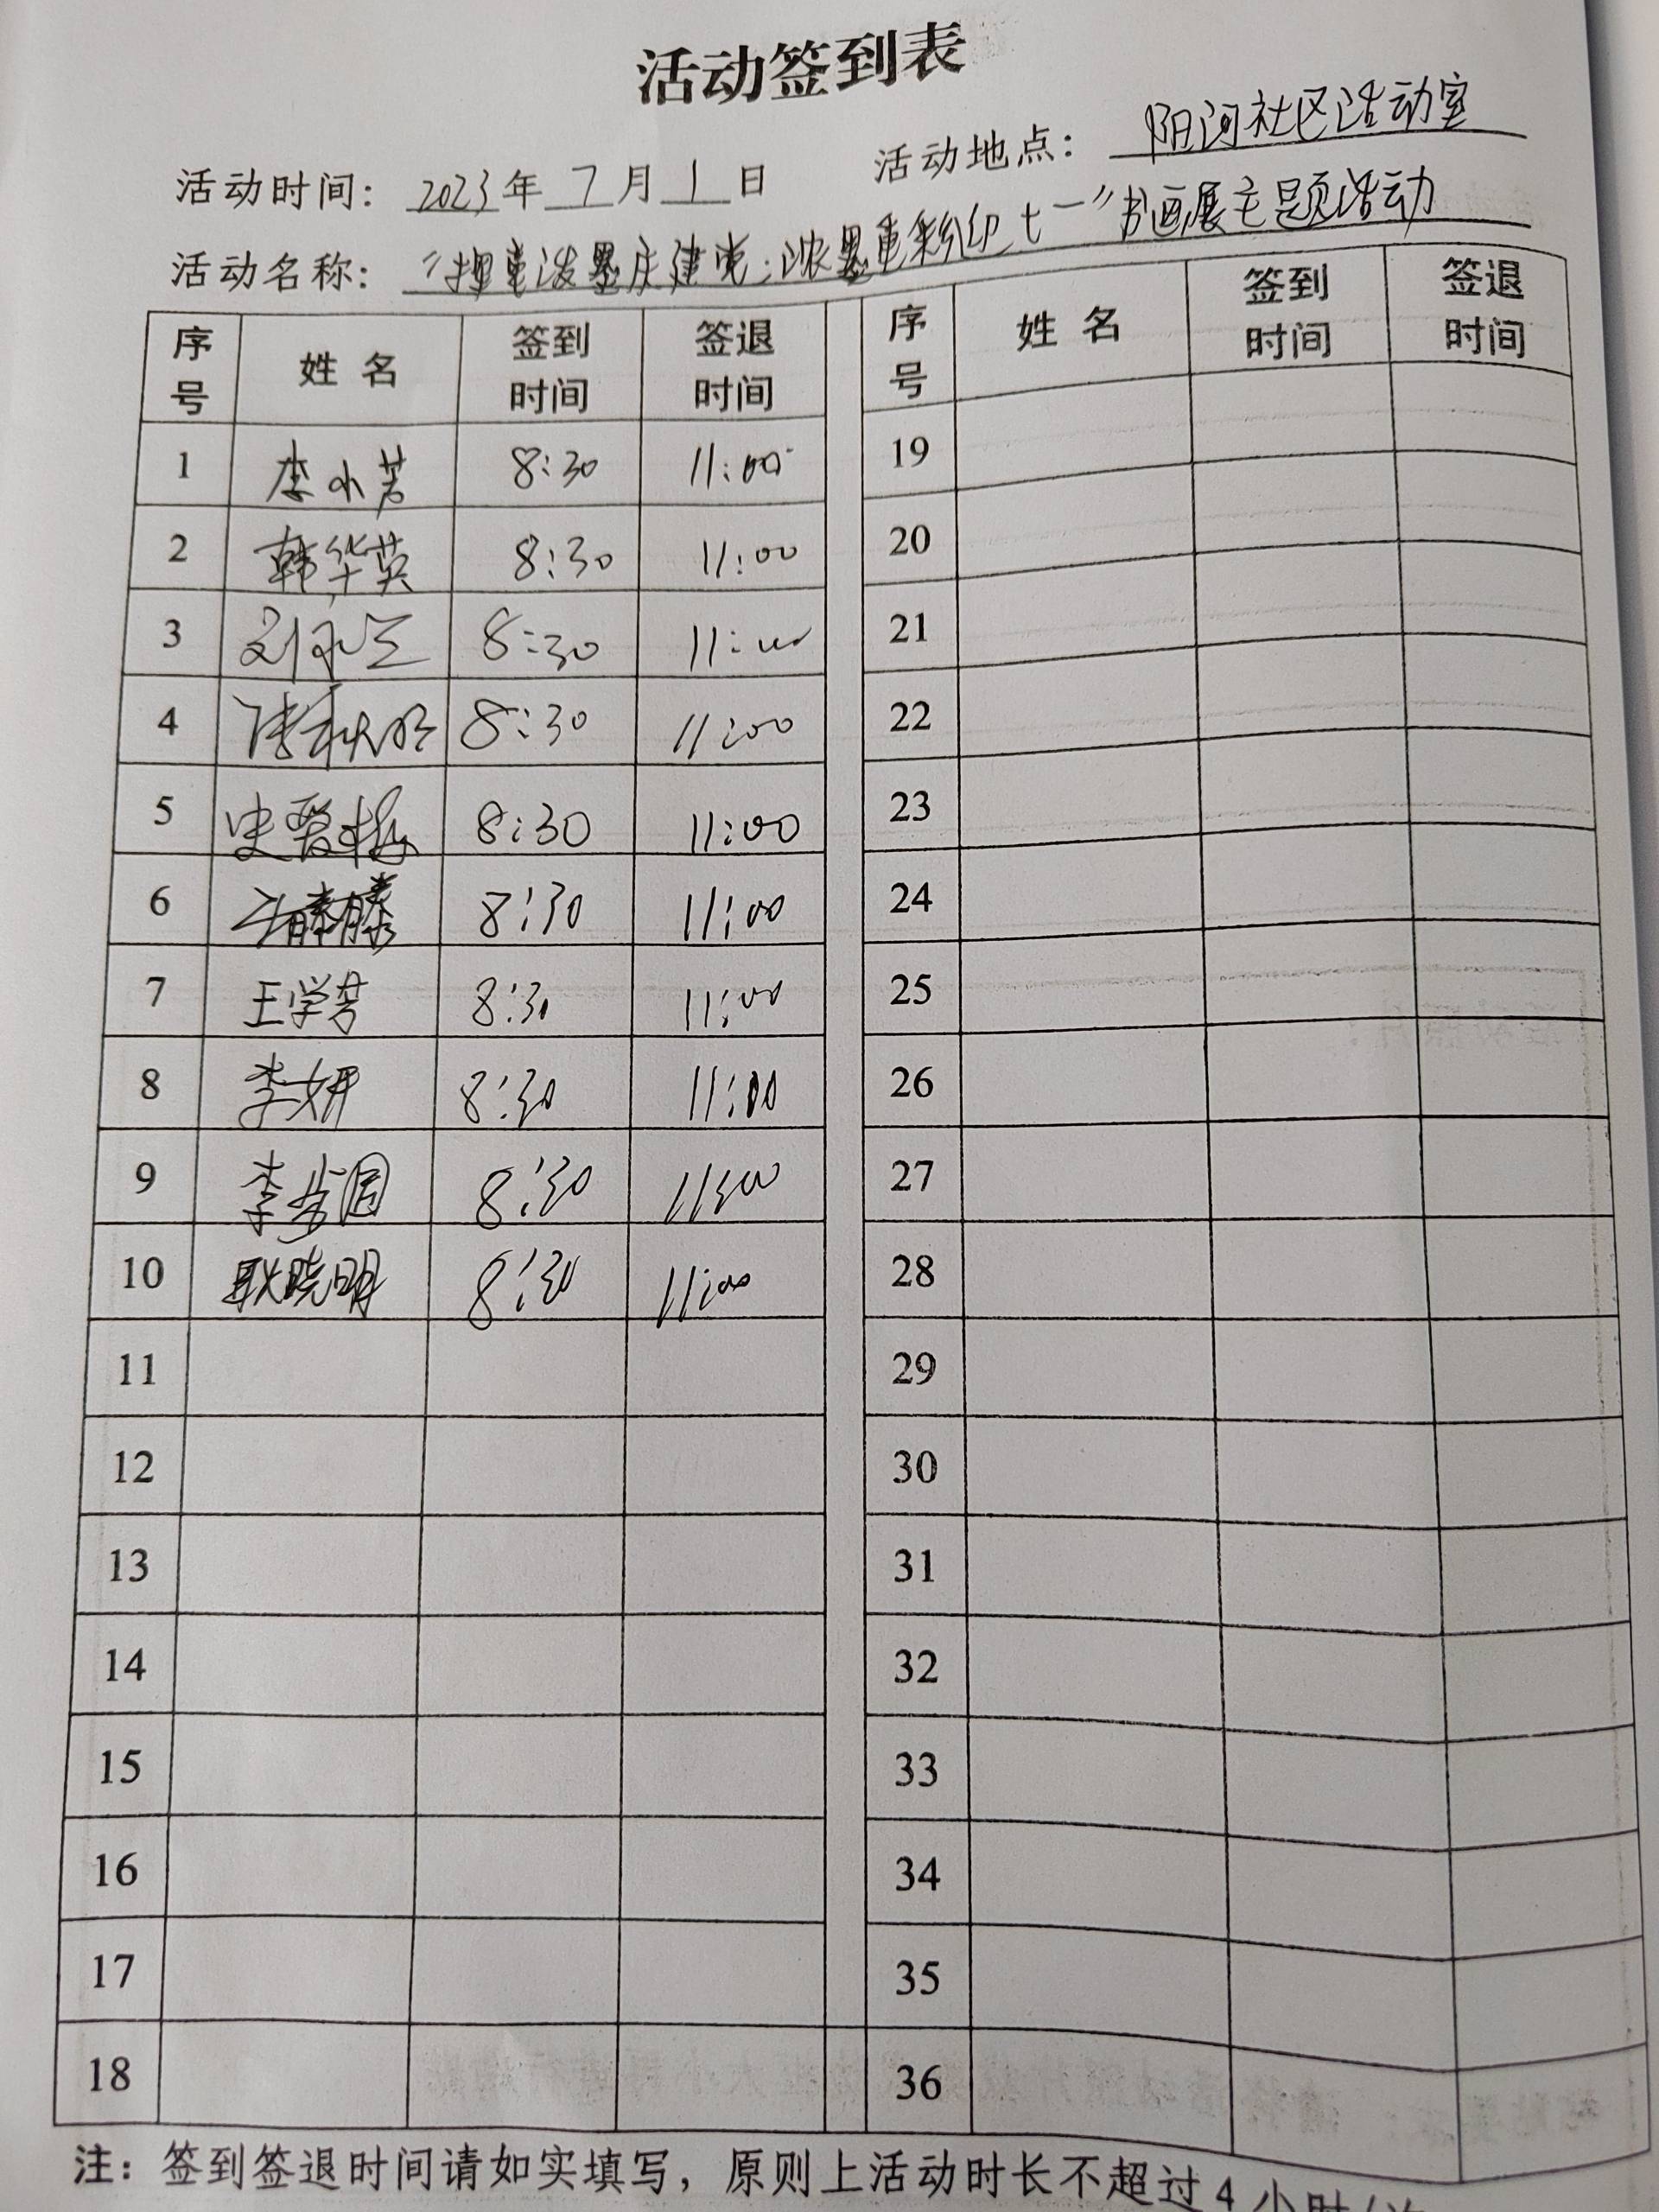 活动签到表
活动时间：2023年7月1日 活动地点：阴河社区活动室
活动名称：“挥毫泼墨庆建党·浓墨重彩迎七一”书画展主题活动
序号 姓名 签到时间 签退时间 序号 姓名 签到时间 签退时间
1 李小芳 8:30 11:00 19
2 韩华英 8:30 11:00 20
3 8:30 11:00 21
4 8:30 11:00 22
5 8:30 11:00 23
6 8:30 11:00 24
7 王学芳 8:30 11:00 25
8 李妍 8:30 11:00 26
9 李 8:30 11:00 27
10 耿晓明 8:30 11:00 28
11 29
12 30
13 31
14 32
15 33
16 34
17 35
18 36
注：签到签退时间请如实填写，原则上活动时长不超过4小时/次